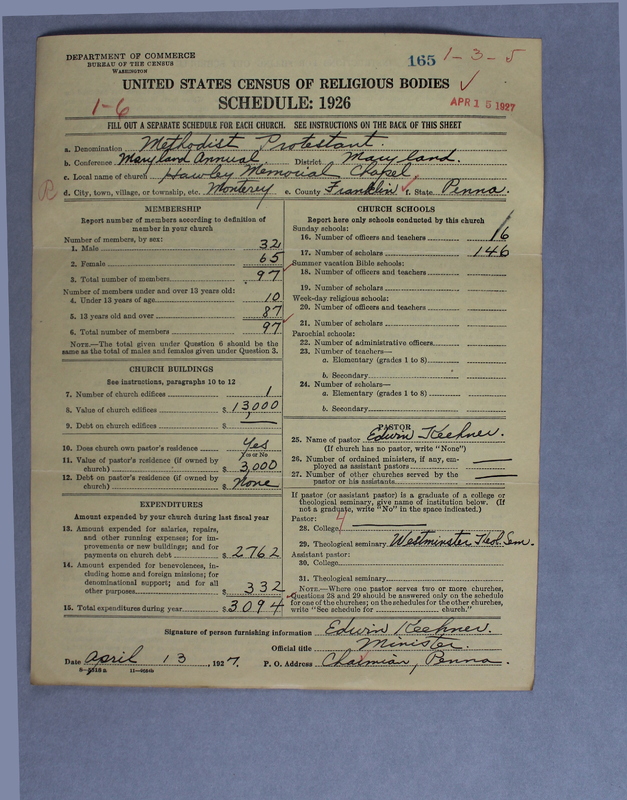 DEPARTMENT OF COMMERCE
BUREAU OF THE CENSUS
WASHINGTON
165 1-3-5
UNITED STATES CENSUS OF RELIGIOUS BODIES
SCHEDULE: 1926
1-6
APR 15 1927
FILL OUT A SEPARATE SCHEDULE FOR EACH CHURCH. SEE INSTRUCTIONS ON THE BACK OF THIS SHEET
a. Denomination Methodist Protestant.
b. Conference Maryland Annual District Maryland.
c. Local name of church Hawley Memorial Chapel
d. City, town, village, or township, etc. Monterey e. County Franklin f. State Penna.
MEMBERSHIP
Report number of members according to definition of member in your church
Number of members, by sex:
1. Male 32
2. Female 65
3. Total number of members 97
Number of members under and over 13 years old:
4. Under 13 years of age 10
5. 13 years old and over 87
6. Total number of members 97
NOTE.—The total given under Question 6 should be the
same as the total of males and females given under Question 3.
CHURCH BUILDINGS
See instructions, paragraphs 10 to 12
7. Number of church edifices 1
8. Value of church edifices $ 13,000
9. Debt on church edifices $ —
10. Does church own pastor's residence Yes
Yes or No
11. Value of pastor's residence (if owned by
church) $ 3,000
12. Debt on pastor's residence (if owned by
church) $ None
EXPENDITURES
Amount expended by your church during last fiscal year
13. Amount expended for salaries, repairs,
and other running expenses; for im-
provements or new buildings; and for
payments on church debt $ 2762
14. Amount expended for benevolences, in-
cluding home and foreign missions; for
denominational support; and for all
other purposes $ 332
15. Total expenditures during year $ 3094
CHURCH SCHOOLS
Report here only schools conducted by this church
Sunday schools:
16. Number of officers and teachers 16
17. Number of scholars 146
Summer vacation Bible schools:
18. Number of officers and teachers
19. Number of scholars
Week-day religious schools:
20. Number of officers and teachers
21. Number of scholars
Parochial schools:
22. Number of administrative officers
23. Number of teachers—
a. Elementary (grades 1 to 8)
b. Secondary
24. Number of scholars—
a. Elementary (grades 1 to 8)
b. Secondary
PASTOR
25. Name of pastor Edwin Keehner.
(If church has no pastor, write "None")
26. Number of ordained ministers, if any, em-
ployed as assistant pastors —
27. Number of other churches served by the
pastor or his assistants —
If pastor (or assistant pastor) is a graduate of a college or
theological seminary, give name of institution below. (If
not a graduate, write "No" in the space indicated.)
Pastor:
28. College 4 —
29. Theological seminary Westminster Theol. Sem.
Assistant pastor:
30. College
31. Theological seminary
NOTE.—Where one pastor serves two or more churches,
Questions 28 and 29 should be answered only on the schedule
for one of the churches; on the schedules for the other churches,
write "See schedule for church."
Signature of person furnishing information Edwin Keehner.
Official title Minister.
Date April 13, 1927. P. O. Address Charmian, Penna.